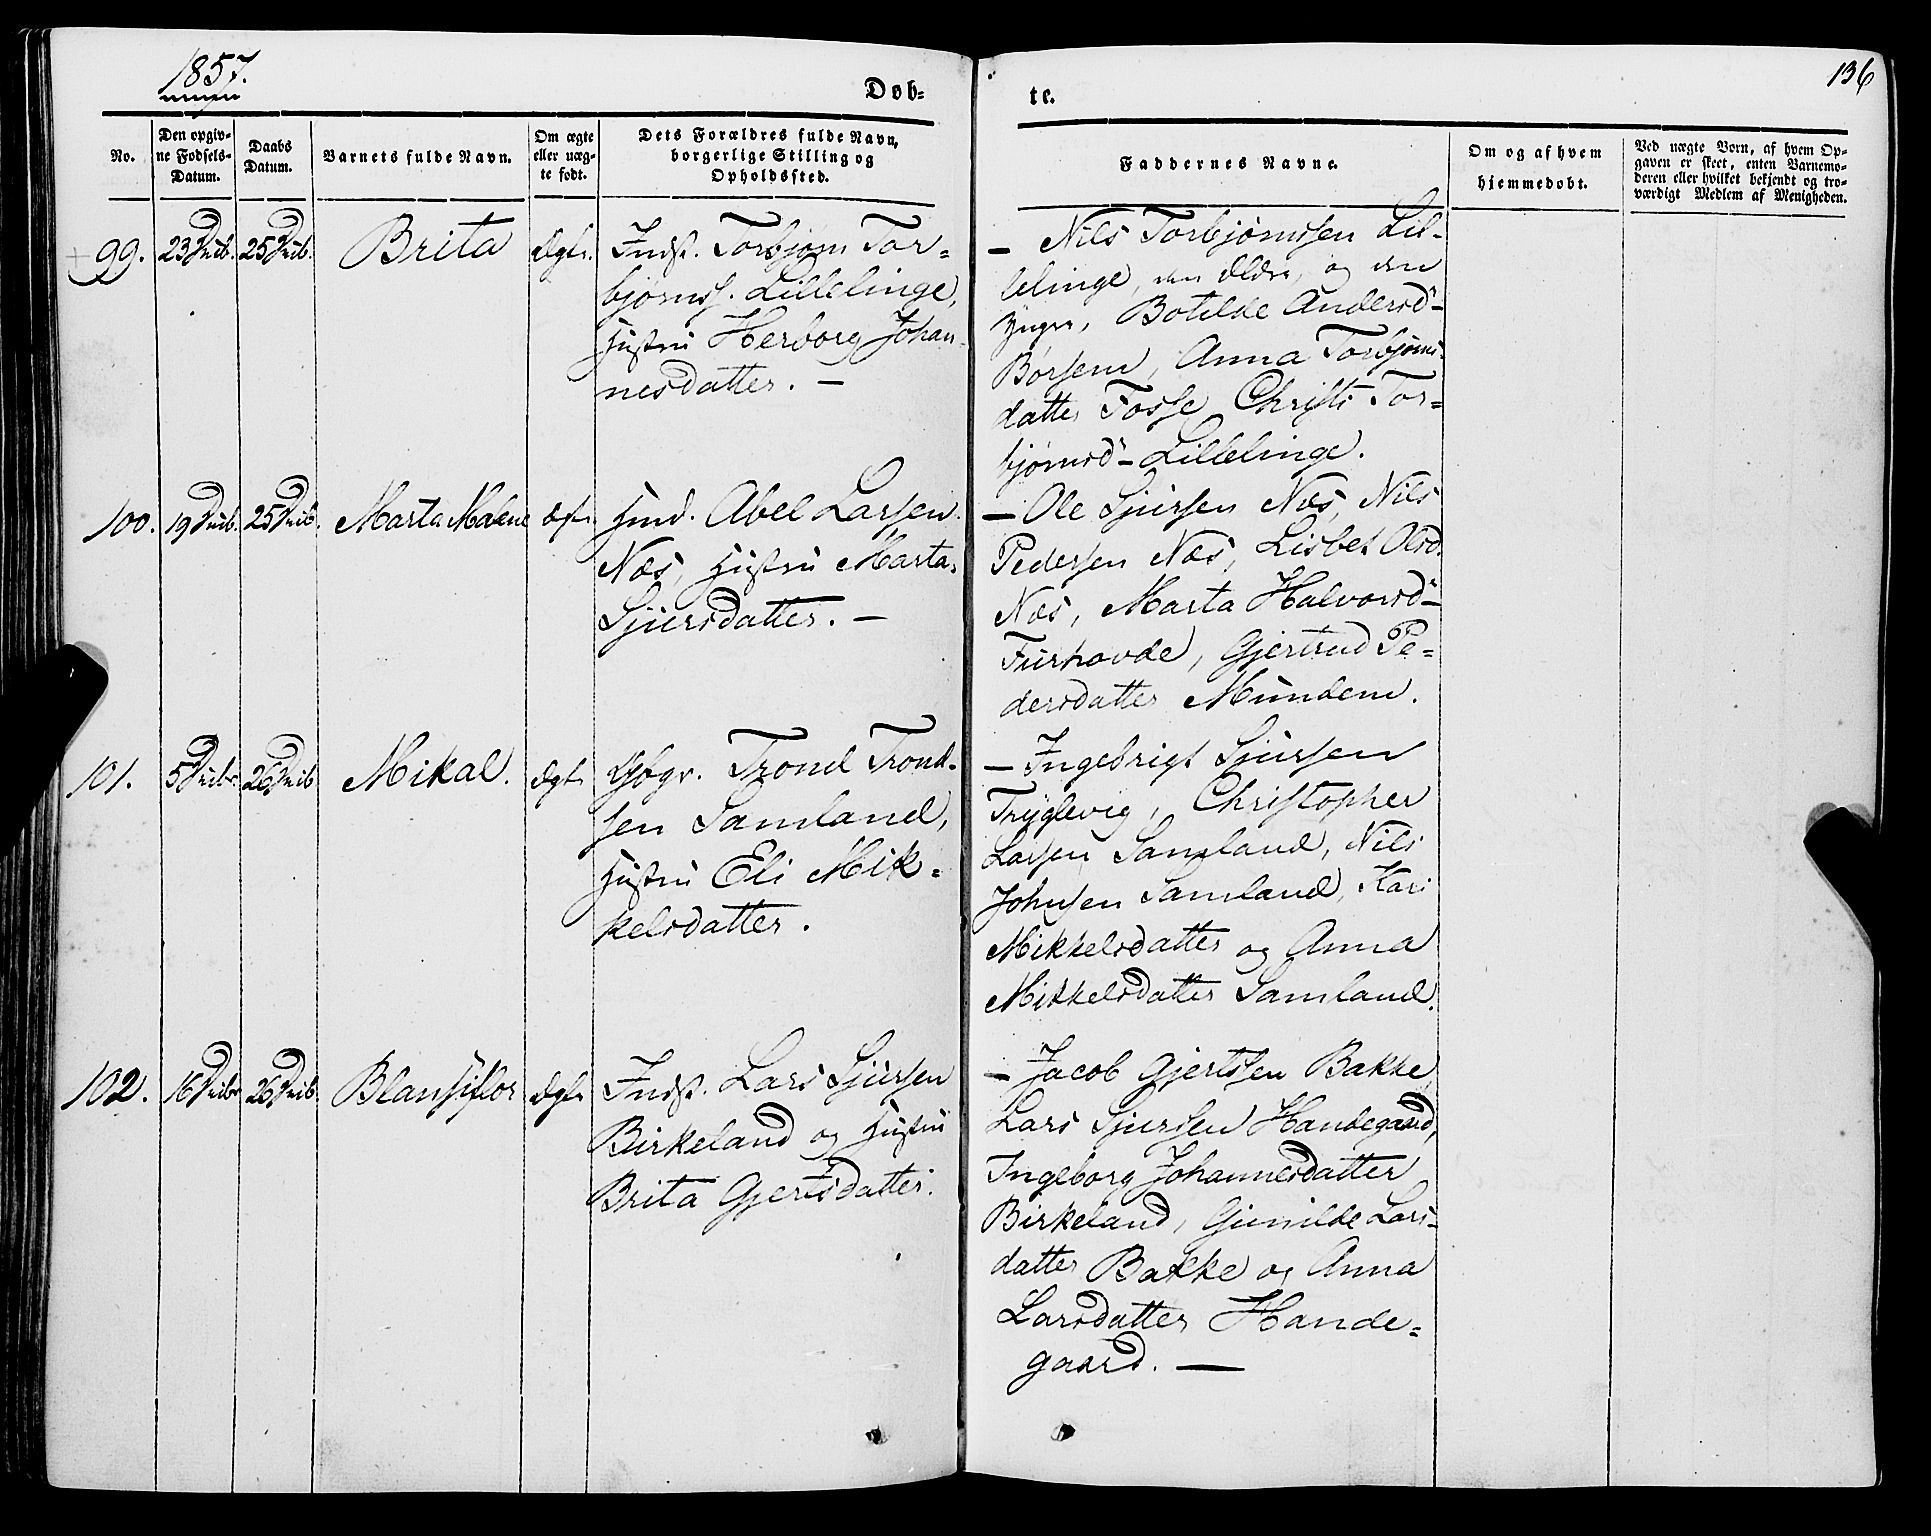 1857.
136
Døb-
te.
No.
Den opgiv-
ne Fødsels-
Datum.
Daabs
Datum.
Barnets fulde Navn.
Om ægte
eller uæg-
te født.
Dets Forældres fulde Navn,
borgerlige Stilling og
Opholdssted.
Faddernes Navne.
Om og af hvem
hjemmedøbt.
Ved uægte Børn, af hvem Op-
gaven er skeet, enten Barnemo-
deren eller hvilket bekjendt og tro-
værdigt Medlem af Menigheden.
99. 23 Dcib. 25 Dcib. Brita Ægte.
Indst. Torbjørn Tor-
bjørnss. Lillelinge,
Hustru Herborg Johan-
nesdatter. —
— Nils Torbjørnssen Lil-
lelinge, den Ældre, og den
Yngre, Botilde Andersd-
Børsem, Anna Torbjørns-
datter Fosse Christi Tor-
bjørnsd- Lillelinge.
100. 19 Dcib. 25 Dcib. Marta Malene Ægte.
Hmd. Abel Larsen
Næs, Hustru Marta
Sjursdatter. —
— Ole Sjursen Næs, Nils
Pedersen Næs, Lisbet Olsd.
Næs, Marta Halvorsd-
Furhovde, Gjertrud Pe-
dersdatter Mundem.
101. 5 Dcibr. 26 Dcib Mikal. Ægte
Gbgr. Trond Trond-
sen Samland,
Hustru Eli Mik-
kelsdatter.
— Ingebrigt Sjursen
Tryglevig, Christopher
Larsen Samland, Nils
Johnsen Samland, Kari
Mikkelsdatter og Anna
Mikkelsdatter Samland.
102. 16 Dcibr 26 Dcib. Blansiflor Ægte
Indst. Lars Sjursen
Birkeland og Hustru
Brita Gjertsdatter.
— Jacob Gjertssen Bakke
Lars Sjursen Handegaard,
Ingeborg Johannesdatter
Birkeland, Gunilde Lars-
datter Bakke og Anna
Larsdatter Hande-
gaard. —